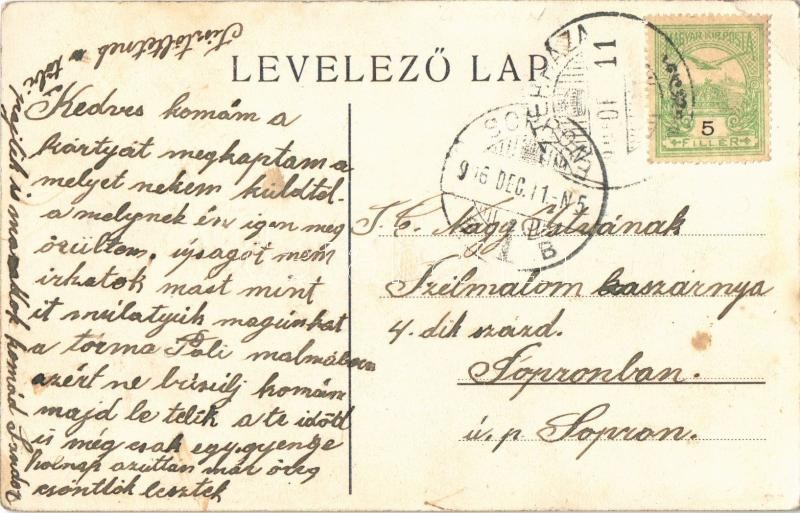 LEVELEZŐ LAP
MAGYAR KIR. POSTA
5
FILLÉR
916 DEC. 11.-N5
B
11
Kedves komám a
kártyát megkaptam a
melyet nekem küldtél.
a melynek én igen meg
örültem. újságot nem
irhatok mást mint
it mulatyuk magunkat
a torma Pali malmában
azért ne búsulj komám
majd le telik a te időd
is még csak egy gyenge
holnap azután már öreg
csontlók lesztek
Tisztöltetnek
is maradok komád Sándor
T. C. Nagy Istvának
Szélmalom kaszárnya
4. dik század.
Sopronban.
ú. p. Sopron.